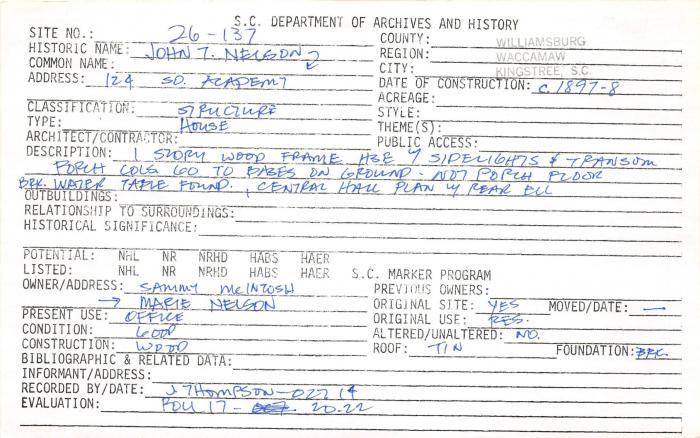 S.C. DEPARTMENT OF ARCHIVES AND HISTORY
SITE NO.: 26-137
COUNTY: WILLIAMSBURG
HISTORIC NAME: JOHN T. NELSON ?
REGION: WACCAMAW
COMMON NAME:
CITY: KINGSTREE, S.C.
ADDRESS: 124 SO. ACADEMY
DATE OF CONSTRUCTION: c. 1897-8
ACREAGE:
CLASSIFICATION: STRUCTURE
STYLE:
TYPE: HOUSE
THEME(S):
ARCHITECT/CONTRACTOR:
PUBLIC ACCESS:
DESCRIPTION: 1 STORY WOOD FRAME HSE W/ SIDELIGHTS & TRANSOM
PORCH COLS GO TO BASES ON GROUND - NOT PORCH FLOOR
BRK. WATER TABLE FOUND., CENTRAL HALL PLAN W/ REAR ELL
OUTBUILDINGS:
RELATIONSHIP TO SURROUNDINGS:
HISTORICAL SIGNIFICANCE:
POTENTIAL: NHL NR NRHD HABS HAER
LISTED: NHL NR NRHD HABS HAER S.C. MARKER PROGRAM
OWNER/ADDRESS: SAMMY McINTOSH
PREVIOUS OWNERS:
→ MARIE NELSON
ORIGINAL SITE: YES MOVED/DATE: —
PRESENT USE: OFFICE
ORIGINAL USE: RES.
CONDITION: GOOD
ALTERED/UNALTERED: NO.
CONSTRUCTION: WOOD
ROOF: TIN FOUNDATION: BRK.
BIBLIOGRAPHIC & RELATED DATA:
INFORMANT/ADDRESS:
RECORDED BY/DATE: J THOMPSON-
EVALUATION: ROLL 17 - 20-22